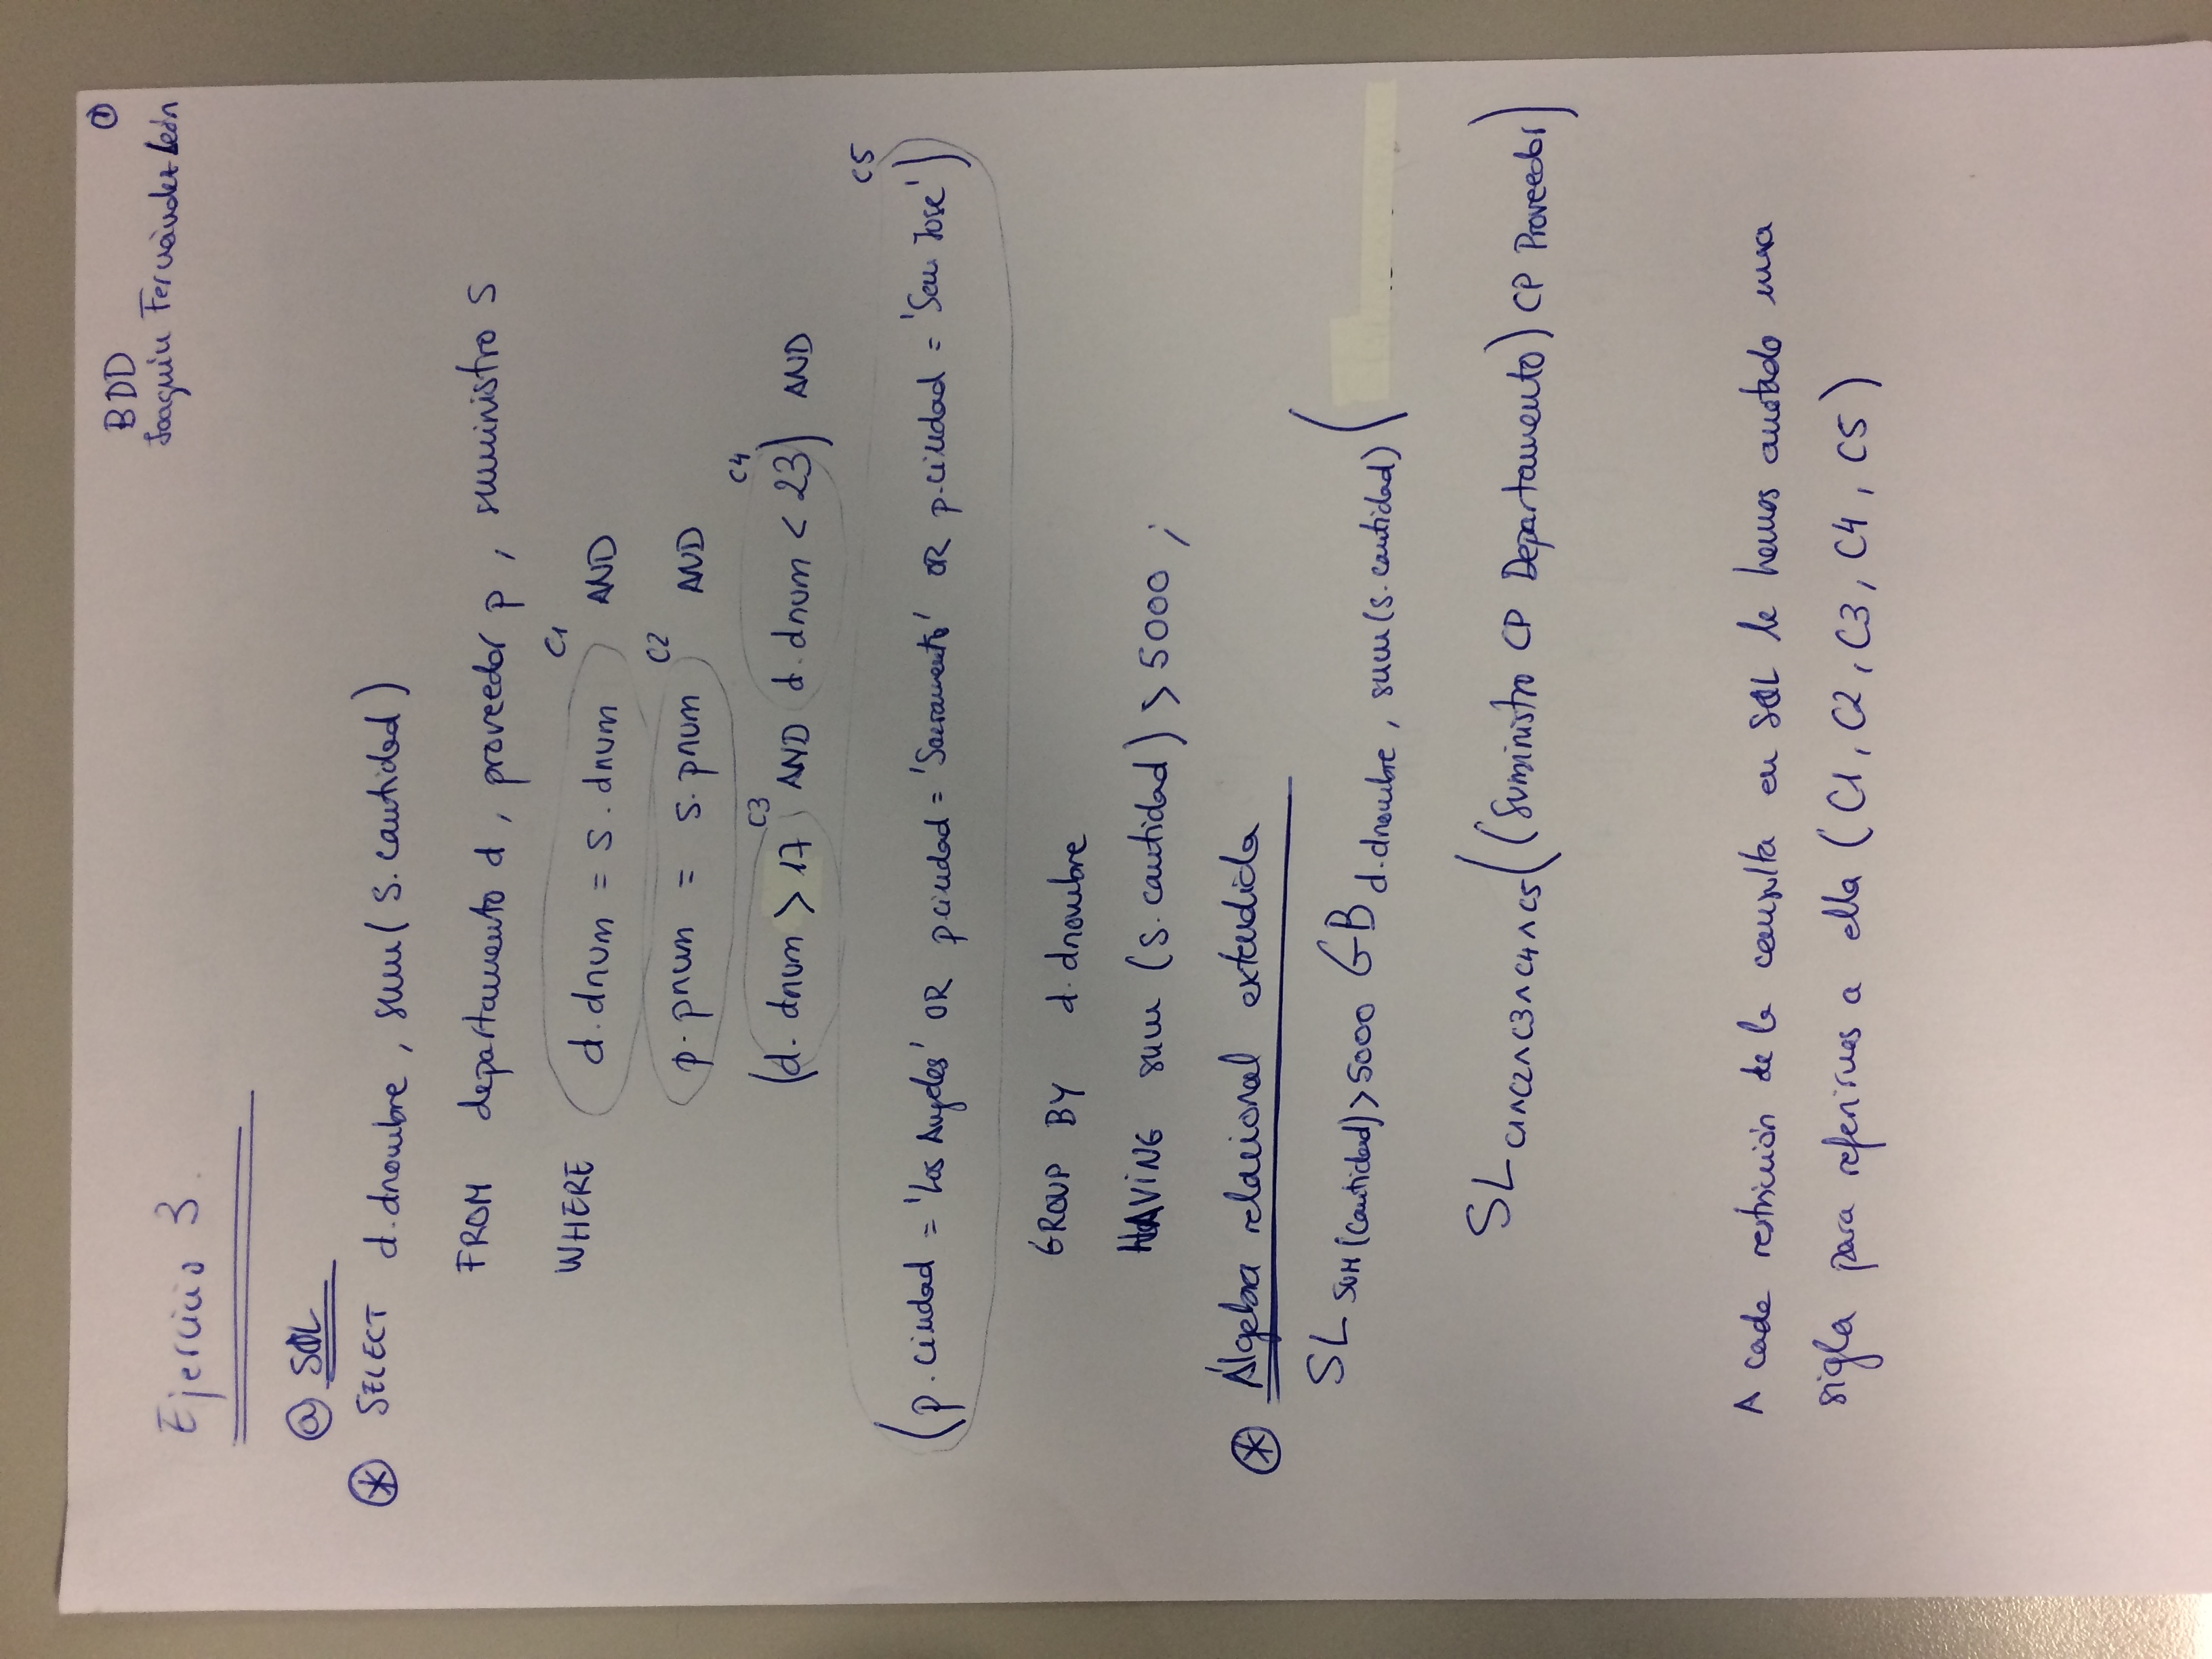 BDD ①
Joaquín Fernández León
Ejercicio 3.
ⓐ SQL
⊛ SELECT d.dnombre, sum(s.cantidad)
FROM departamento d, proveedor p, suministro s
WHERE d.dnum = s.dnum C1 AND
p.pnum = s.pnum C2 AND
(d.dnum > 17 C3 AND d.dnum < 23) C4 AND
(p.ciudad = 'Los Angeles' OR p.ciudad = 'Sacramento' OR p.ciudad = 'San Jose') C5
GROUP BY d.dnombre
HAVING sum (s.cantidad) > 5000 ;
⊛ Álgebra relacional extendida
SL SUM(cantidad)>5000 GB d.dnombre, sum(s.cantidad) (
SL C1∧C2∧C3∧C4∧C5 ((Suministro CP Departamento) CP Proveedor)
A cada restricción de la consulta en SQL le hemos anotado una
sigla para referirnos a ella (C1, C2, C3, C4, C5)